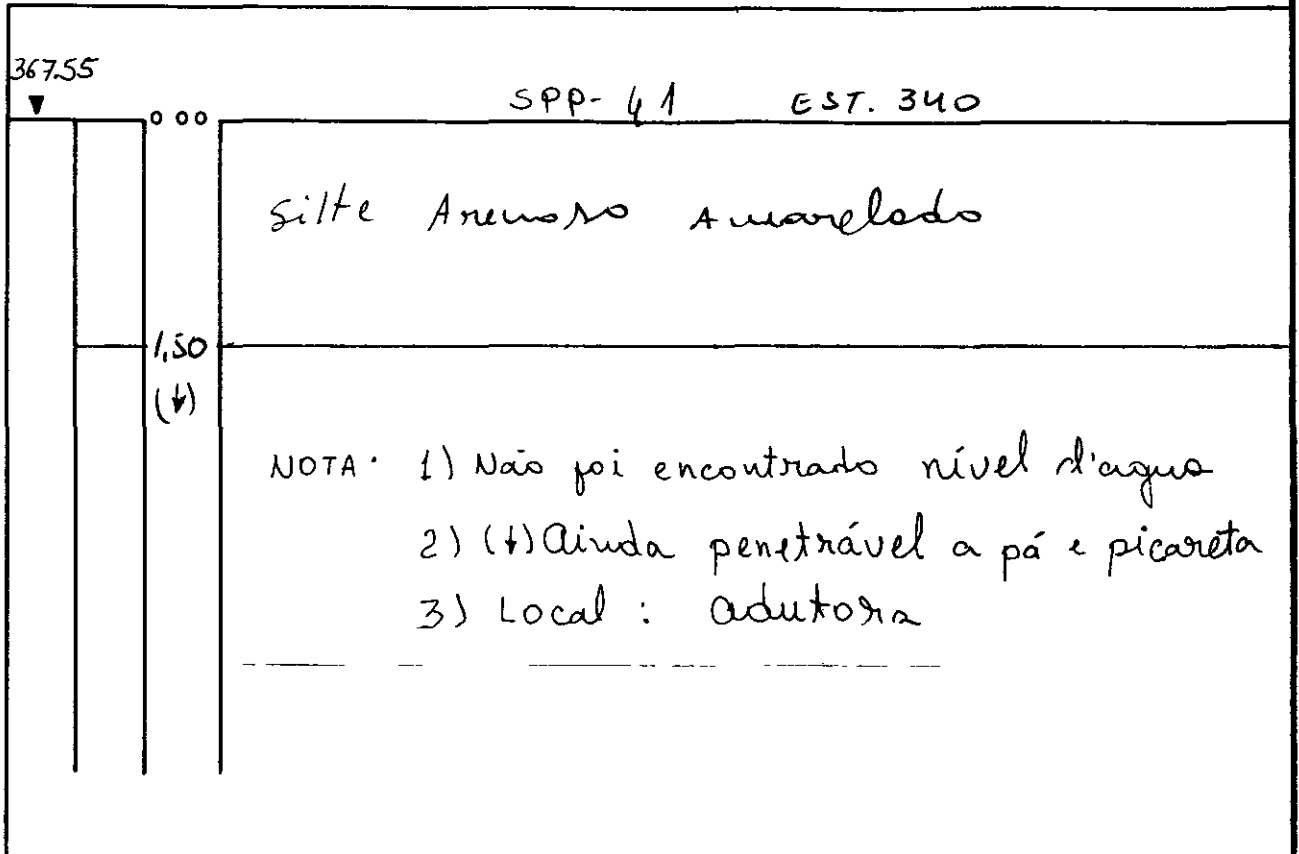 367.55
SPP-41 EST. 340
0 00
Silte Arenoso Amarelado
1,50
(↓)
NOTA· 1) Não foi encontrado nível d'agua
2) (↓) Ainda penetrável a pá e picareta
3) Local : adutora